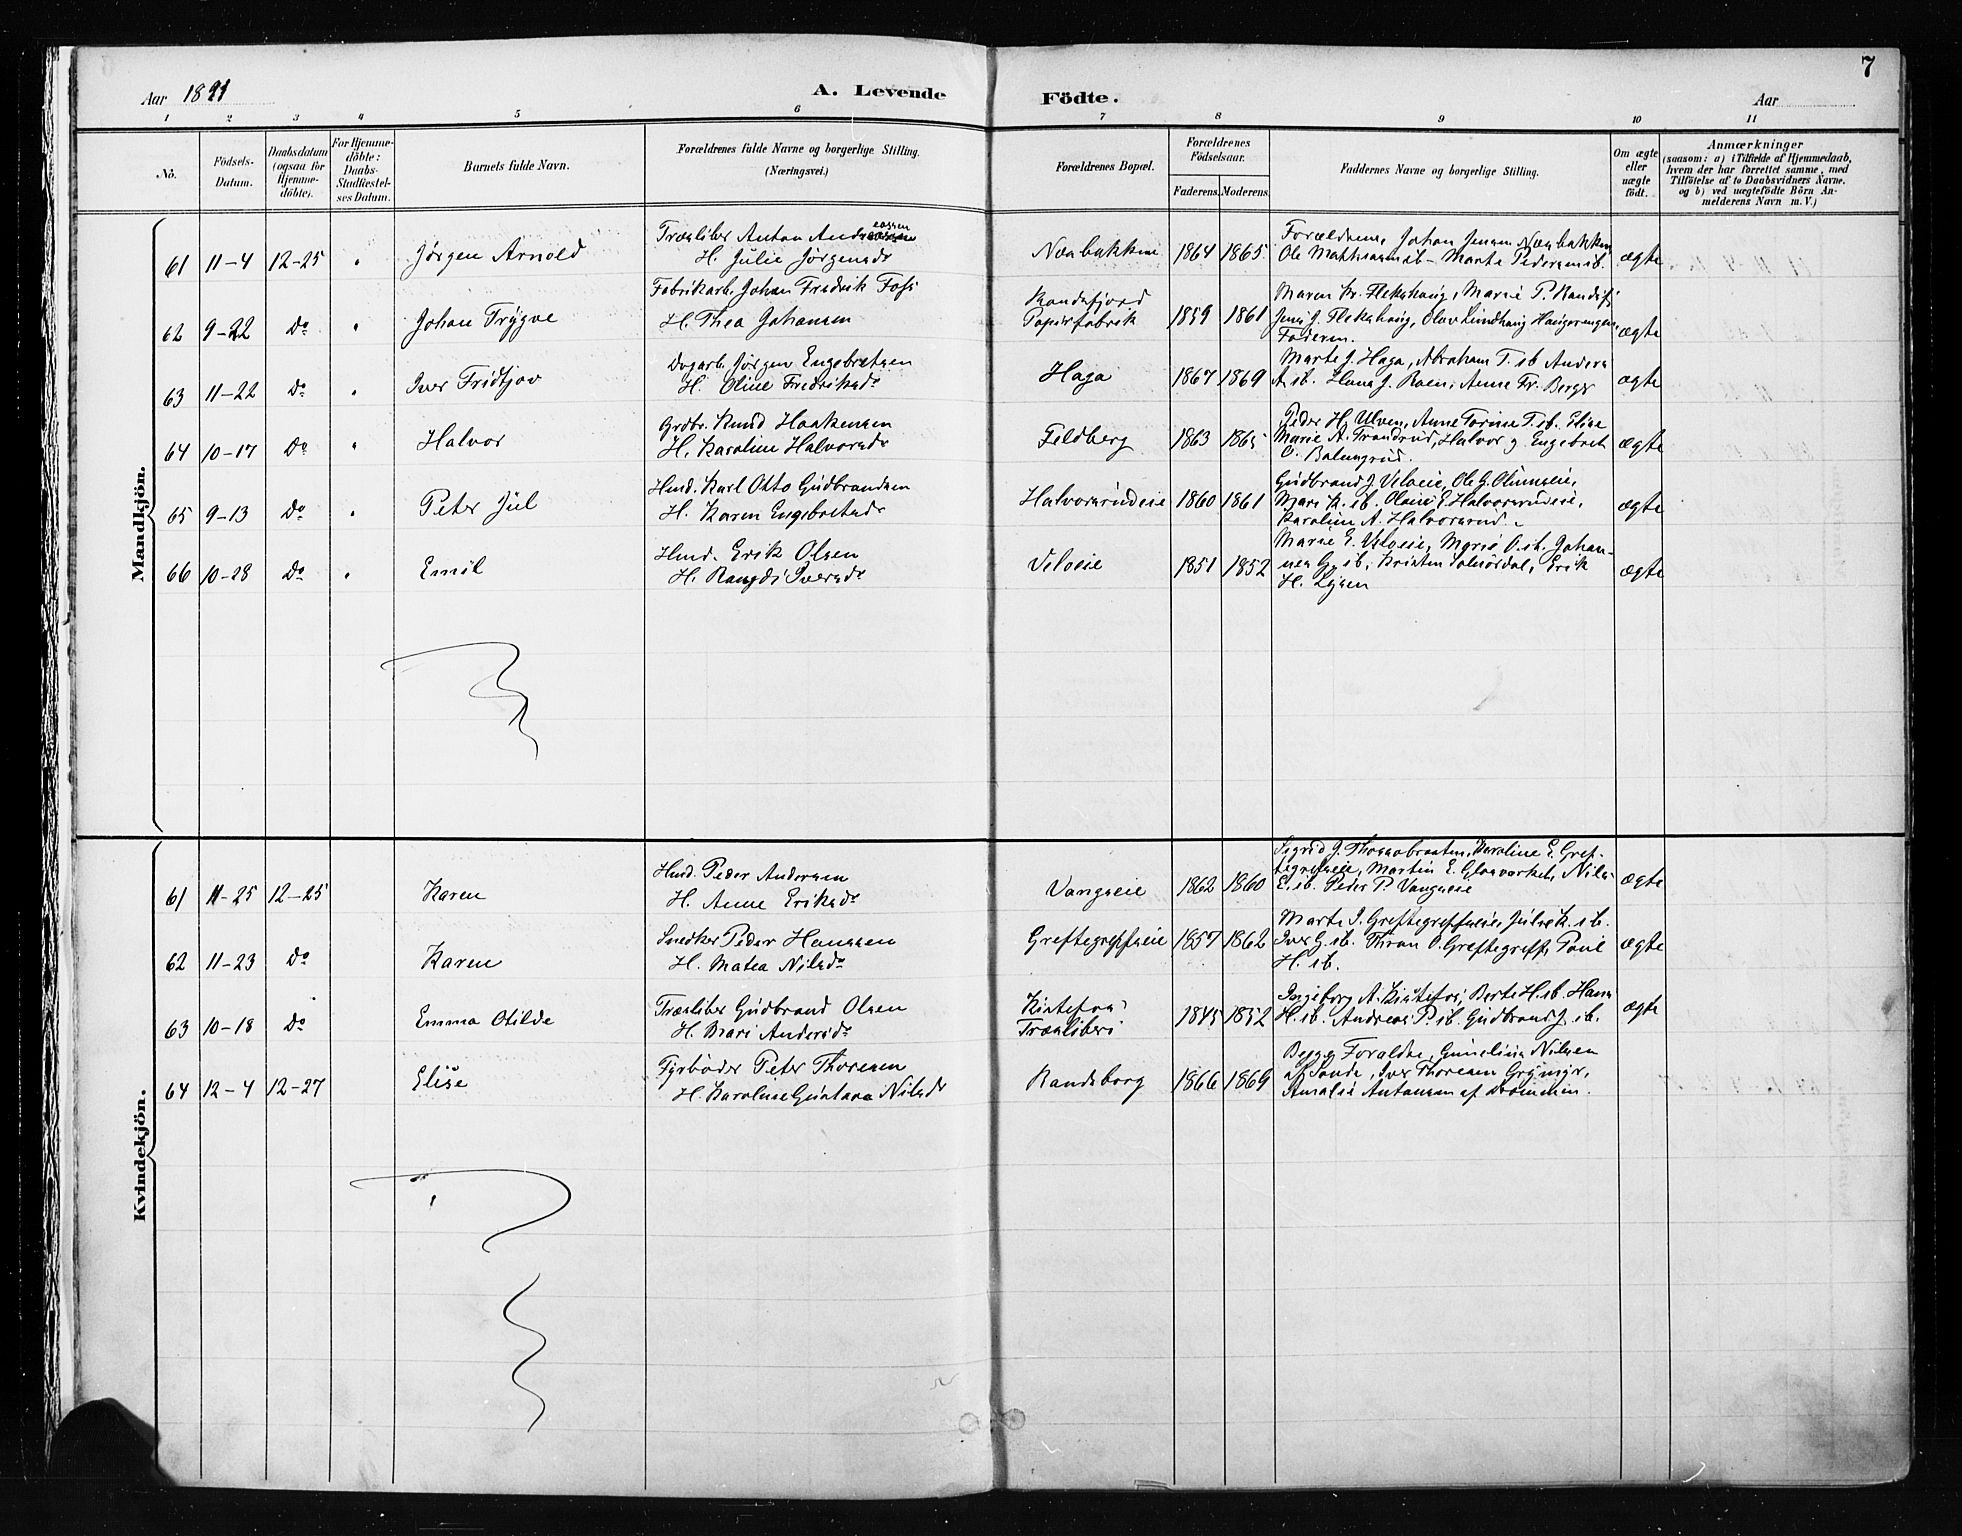 7
Aar 1891 A. Levende Födte. Aar
1 2 3 4 5 6 7 8 9 10 11
No.
Födsels-Datum.
Daabsdatum (ogsaa for Hjemme-döbte).
For Hjemme-döbte: Daabs-Stadfæstel-ses Datum.
Barnets fulde Navn.
Forældrenes fulde Navne og borgerlige Stilling. (Næringsvei.)
Forældrenes Bopæl.
Forældrenes Födselsaar.
Faderens. Moderens.
Faddernes Navne og borgerlige Stilling.
Om ægte eller uægte födt.
Anmærkninger
(saasom: a) i Tilfælde af Hjemmedaab,
hvem der har forrettet samme, med
Tilföielse af to Daabsvidners Navne,
og b) ved uægtefödte Börn An-
melderens Navn m. V.)
Mandkjön.
61 11-4 12-25 " Jørgen Arnold
Træsliber Anton Andreassen
H. Julie Jørgensdr
Næsbakken 1864 1865
Forældrene, Johan Jensen Næsbakken
Ole Mathiasen ib - Marte Pedersen ib.
ægte
62 9-22 Do " Johan Trygve
Fabrikarb. Johan Fredrik Foss
H. Thea Johansen
Randsfjord
Papirfabrik 1859 1861
Maren Kr. Flekshaug, Marie P. Randsfj.
Jens J. Flekshaug, Olav Lundhaug
Faderen.
ægte
63 11-22 Do " Iver Fridtjov
Dagarb. Jørgen Engebretsen
H. Oline Fredriksdr
Haga 1867 1869
Marte J. Haga, Abraham T. ib Anders
A. ib. Hans J. Roen, Anne Fr. Berger
ægte
64 10-17 Do " Halvor
Grdbr. Knud Haakensen
H. Karoline Halvorsdr
Feldberg 1863 1865
Peder H. Ulven, Anne Torine T. ib. Elise
Marie A. Trandrud, Halvor og Engebret
O. Balungrud.
ægte
65 9-13 Do " Peter Jul
Hmd. Karl Otto Gudbrandsen
H. Karen Engebretsdr
Halvorsrudeie 1860 1861
Gudbrand J. Veloeie, Ole G.
Mari K. ib. Olaus E. Halvorsrudeie,
Karoline A. Halvorsrud.
ægte
66 10-28 Do " Emil
Hmd. Erik Olsen
H. Rangdi Iversdr
Veloeie 1851 1852
Marie E. Veloeie, Marie O. ib. Johan-
nes G. ib, Kristen Solvørdal, Erik
H.
ægte
Kvindekjön.
61 11-25 12-25 Karen
Hmd. Peder Andersen
H. Anne Eriksdr
Vangseie 1862 1860
Sigrid J. Thossobraaten, Karoline E. Gref-
tegreffseie, Martin E. Glasværket, Nils
E. ib. Peter P. Vangseie
ægte
62 11-23 Do Karen
Snedker Peder Hanssen
H. Matea Nilsdr
Greftegreffseie 1857 1862
Marte I. Greftegreffseie, Julie K. ib.
Iver G. ib. Thron O. Greftegreff, Povel
H. ib.
ægte
63 10-18 Do Emma Otilde
Træsliber Gudbrand Olsen
H. Mari Andersdr
Kistefos
Træsliberi 1845 1852
Ingeborg A. Kistefos, Berte H. ib. Hans
H. ib. Andreas P. ib. Gudbrand J. ib.
ægte
64 12-4 12-27 Elise
Fyrbøder Peter Thoresen
H. Karoline Gustava Nilsdr
Randsborg 1866 1869
Begge Foraldre, Gunelius Nilsen
af Sande, Iver Thoresen
Amalie Antonsen af Drammen.